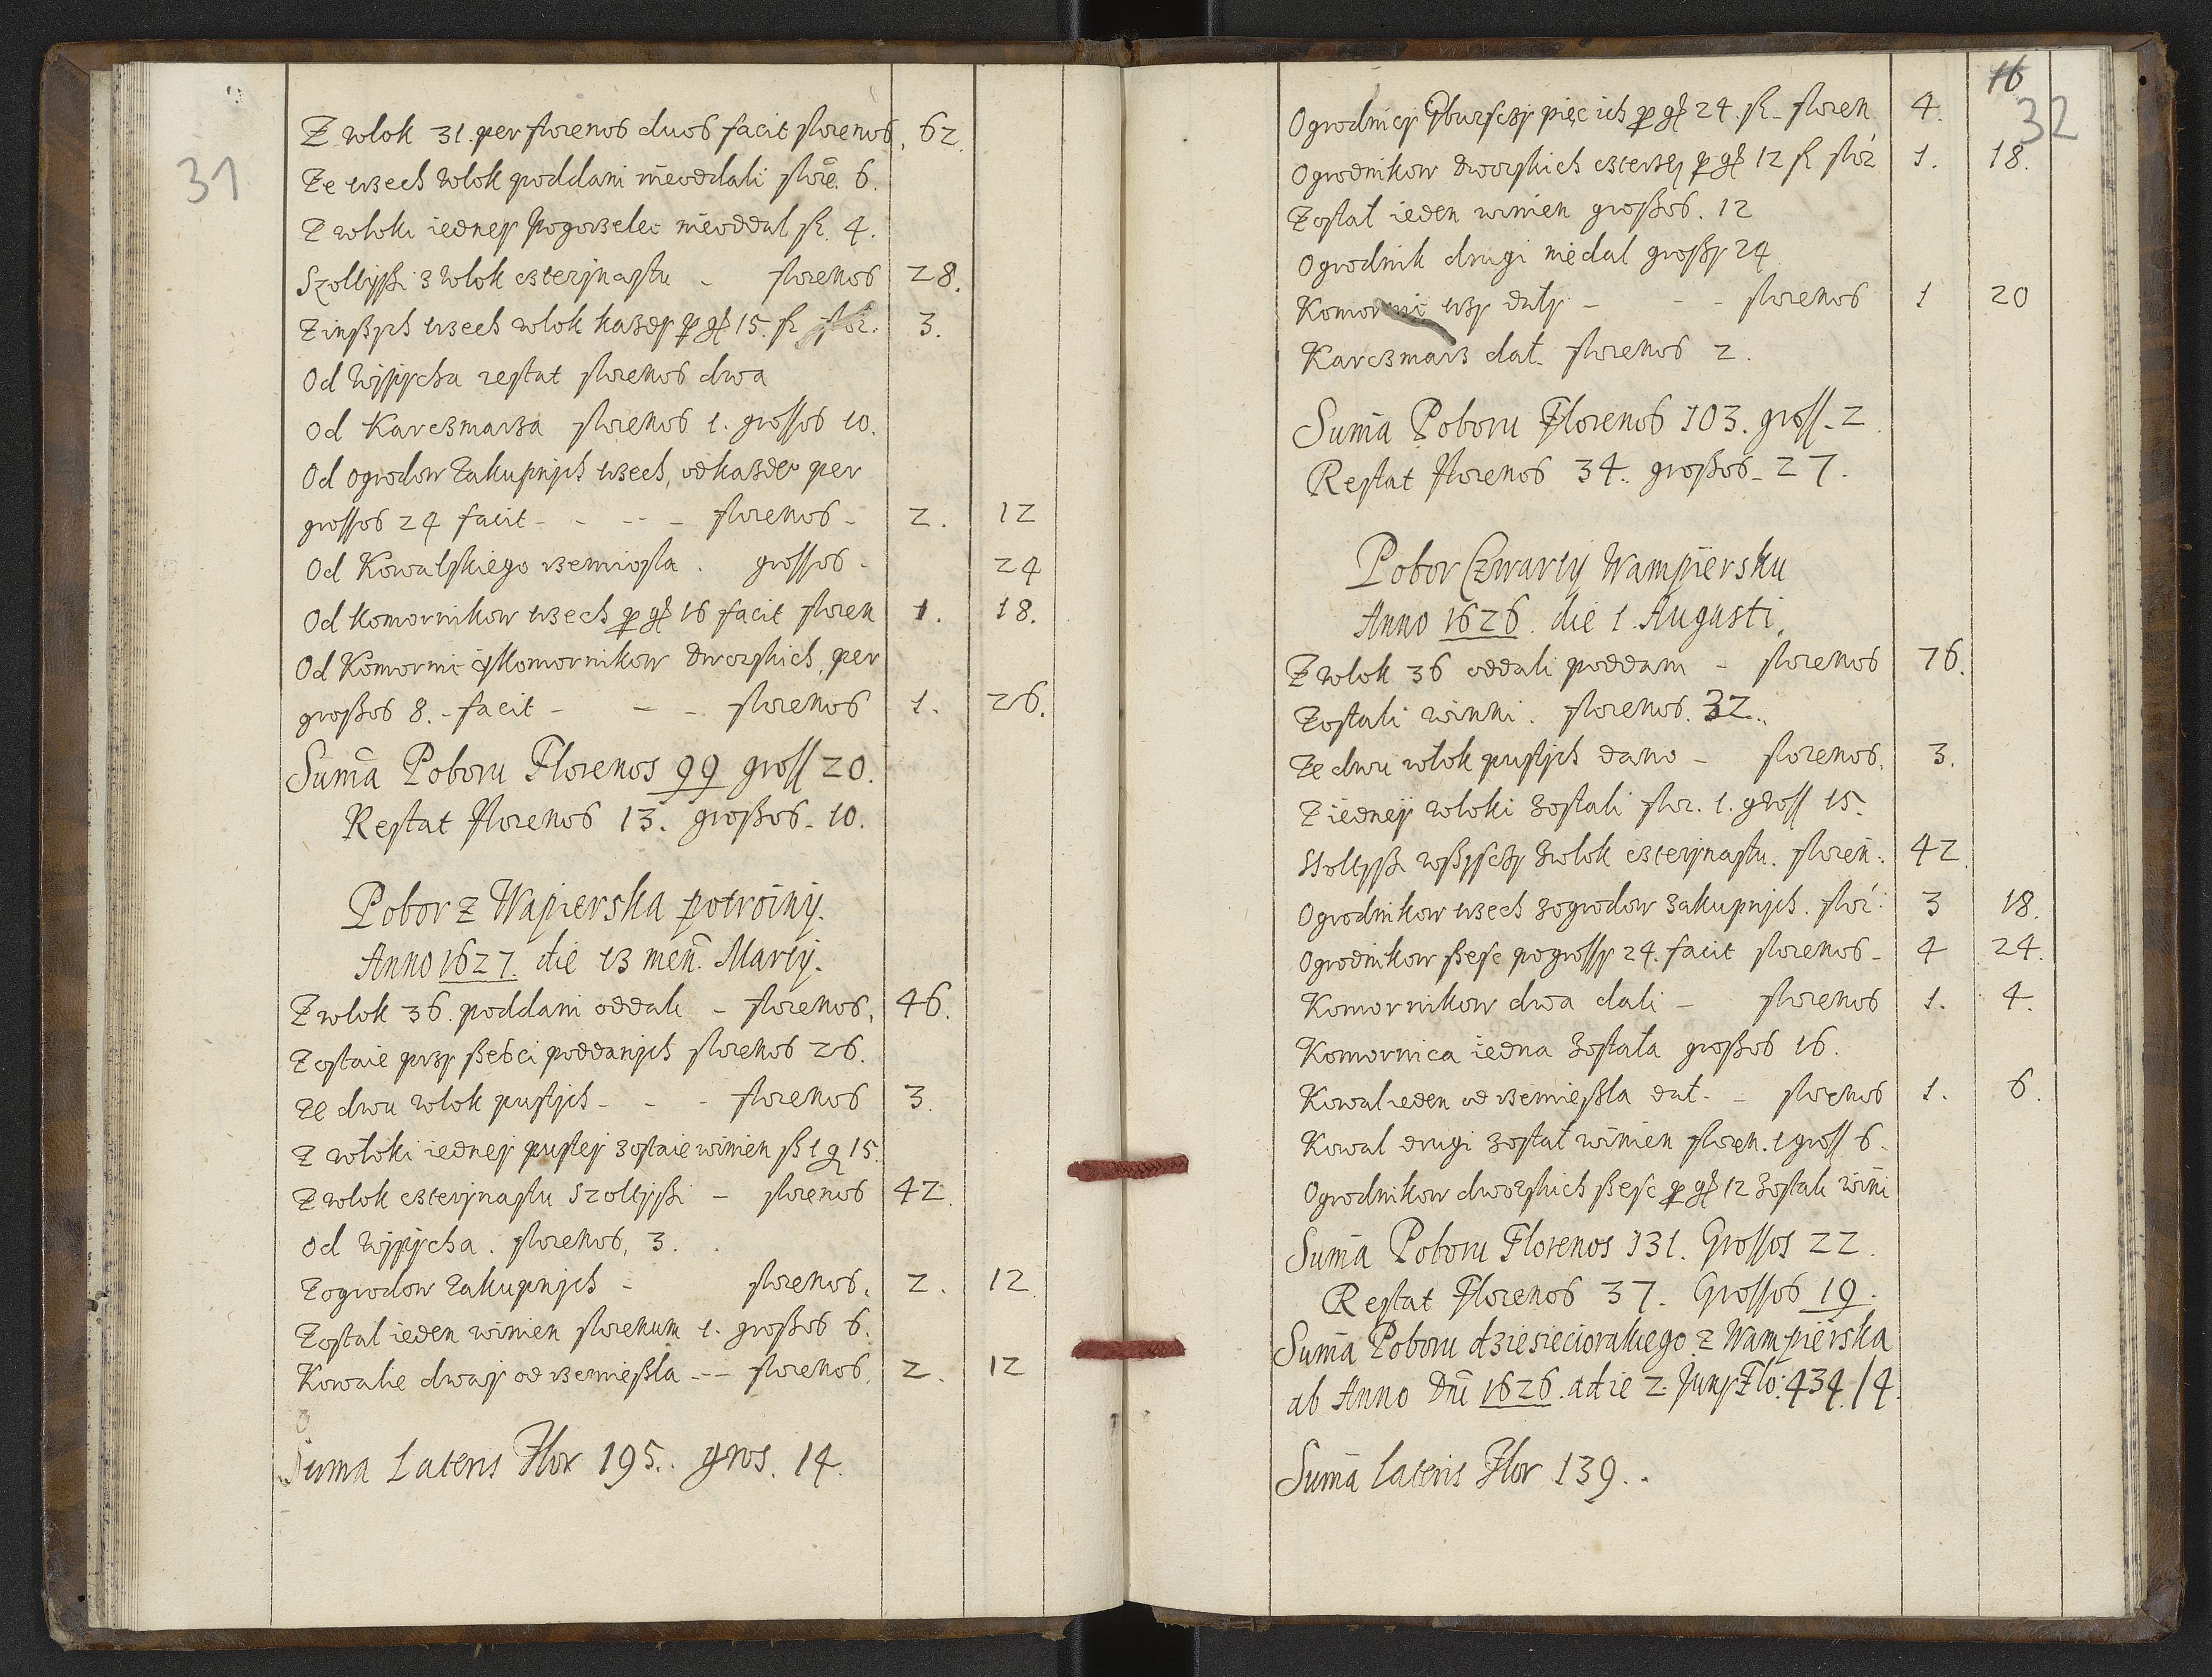 31
Z wlok 31. per florenos duos facit florenos. 62.
Ze trzech wlok poddani nieoddali flore. 6.
Z wloki iedney Pogorzelec nieoddal fl. 4.
Szoltyssi z wlok czterynastu - florenos 28.
Z inßych trzech wlok kazdy per gß 15. fl flor. 3.
Od Wypycha restat florenos dwa
Od Karczmarza florenos 1. grossos 10.
Od ogrodow Zakupnych trzech, od kazdeo per
grossos 24 facit - - - - florenos - 2. 12
Od Kowalskiego rzemiosla . grossos - 24
Od Komornikow trzech per gß 16 facit floren 1. 18.
Od Komornic y Komornikow Dworskich, per
großos 8. - facit - - - florenos 1. 26.
Suma Poboru Florenos 99 gross 20.
Restat Florenos 13. großos - 10.
Pobor z Wapierska potroiny.
Anno 1627. die 13 men. Martij.
Z wlok 36. poddani oddali - florenos, 46.
Zostaie przy ßesci poddanych florenos 26.
ze dwu wlok pustych - - - florenos 3.
Z wloki iedney pustey zostaie winien fl 1 g 15.
Z wlok czterynastu Szoltyssi - florenos 42.
Od Wypycha . florenos, 3.
Z ogrodow Zakupnych - florenos, 2. 12
Zostal ieden winien florenum 1. großos 6.
Kowalie dway od rzemießla - - - florenos. 2. 12
Suma Lateris Flor 195.. gros. 14.
16
32
Ogrodnicy Gbursczy pięc ich per gß 24. fl - floren 4.
Ogrodnikow Dworskich czterzy per gß 12 fl flor 1. 18.
Zostal ieden winien großos. 12
Ogrodnik drugi niedal großy 24
Komornic trzy daly - - - florenos 1 20
Karczmarz dal - florenos 2.
Suma Poboru Florenos 103. gross - 2.
Restat Florenos 34.. großos - 27.
Pobor Czwarty Wampiersku
Anno 1626. die 1. Augusti.
Z wlok 36 oddali poddani - florenos 76.
Zostali winni. florenos. 32..
Ze dwu wlok pustych dano - florenos. 3.
Z iedney wloki zostali flor. 1. gross 15.
Szoltyssi wßysczy z wlok czterynastu. floren: 42
Ogrodnikow trzech z ogrodow zakupnych. flor: 3 18.
Ogrodnikow ßesc po grossy 24. facit florenos - 4 24.
Komornikow dwa dali - florenos 1. 4.
Komornica iedna zostala großos 16.
Kowal ieden od rzemießla dal - - florenos 1. 6.
Kowal drugi zostal winien floren. 1 gross 6.
Ogrodnikow dworskich ßesc per gß 12 zostali wini
Suma Poboru Florenos 131. Grossos 22.
Restat Florenos 37. Grossos 19.
Suma Poboru dziesieciorakiego z Wampierska
ab Anno Dni 1626. a die 2. Juny Flo: 434./4.
Suma lateris Flor 139..